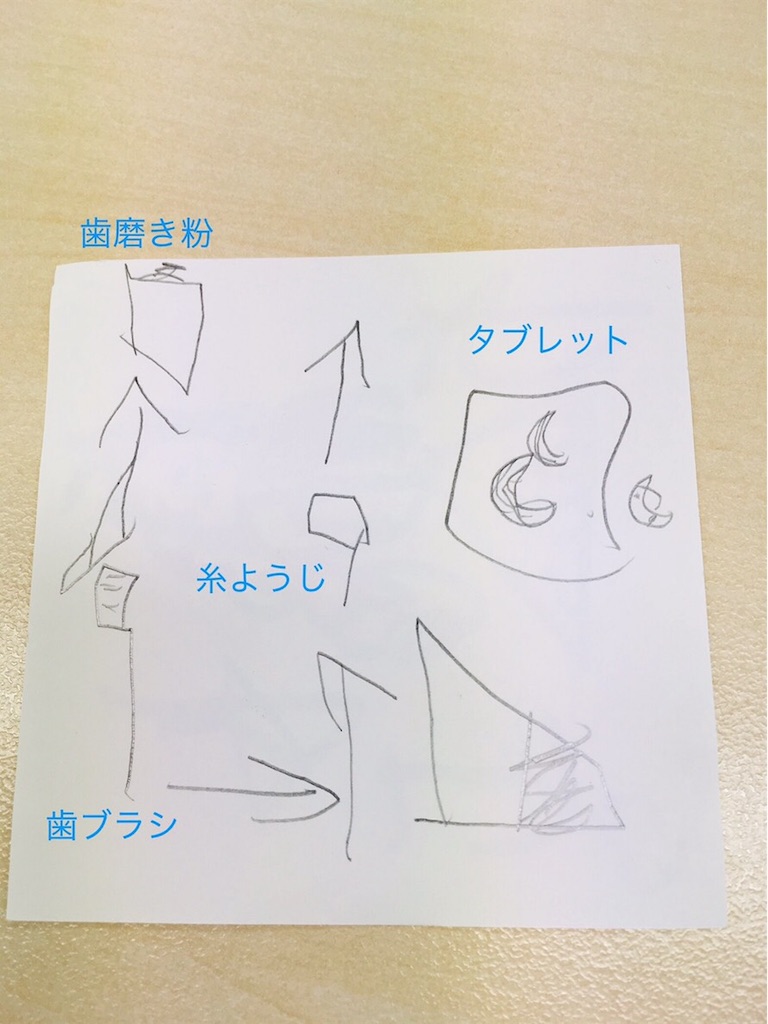 歯磨き粉
タブレット
糸ようじ
歯ブラシ